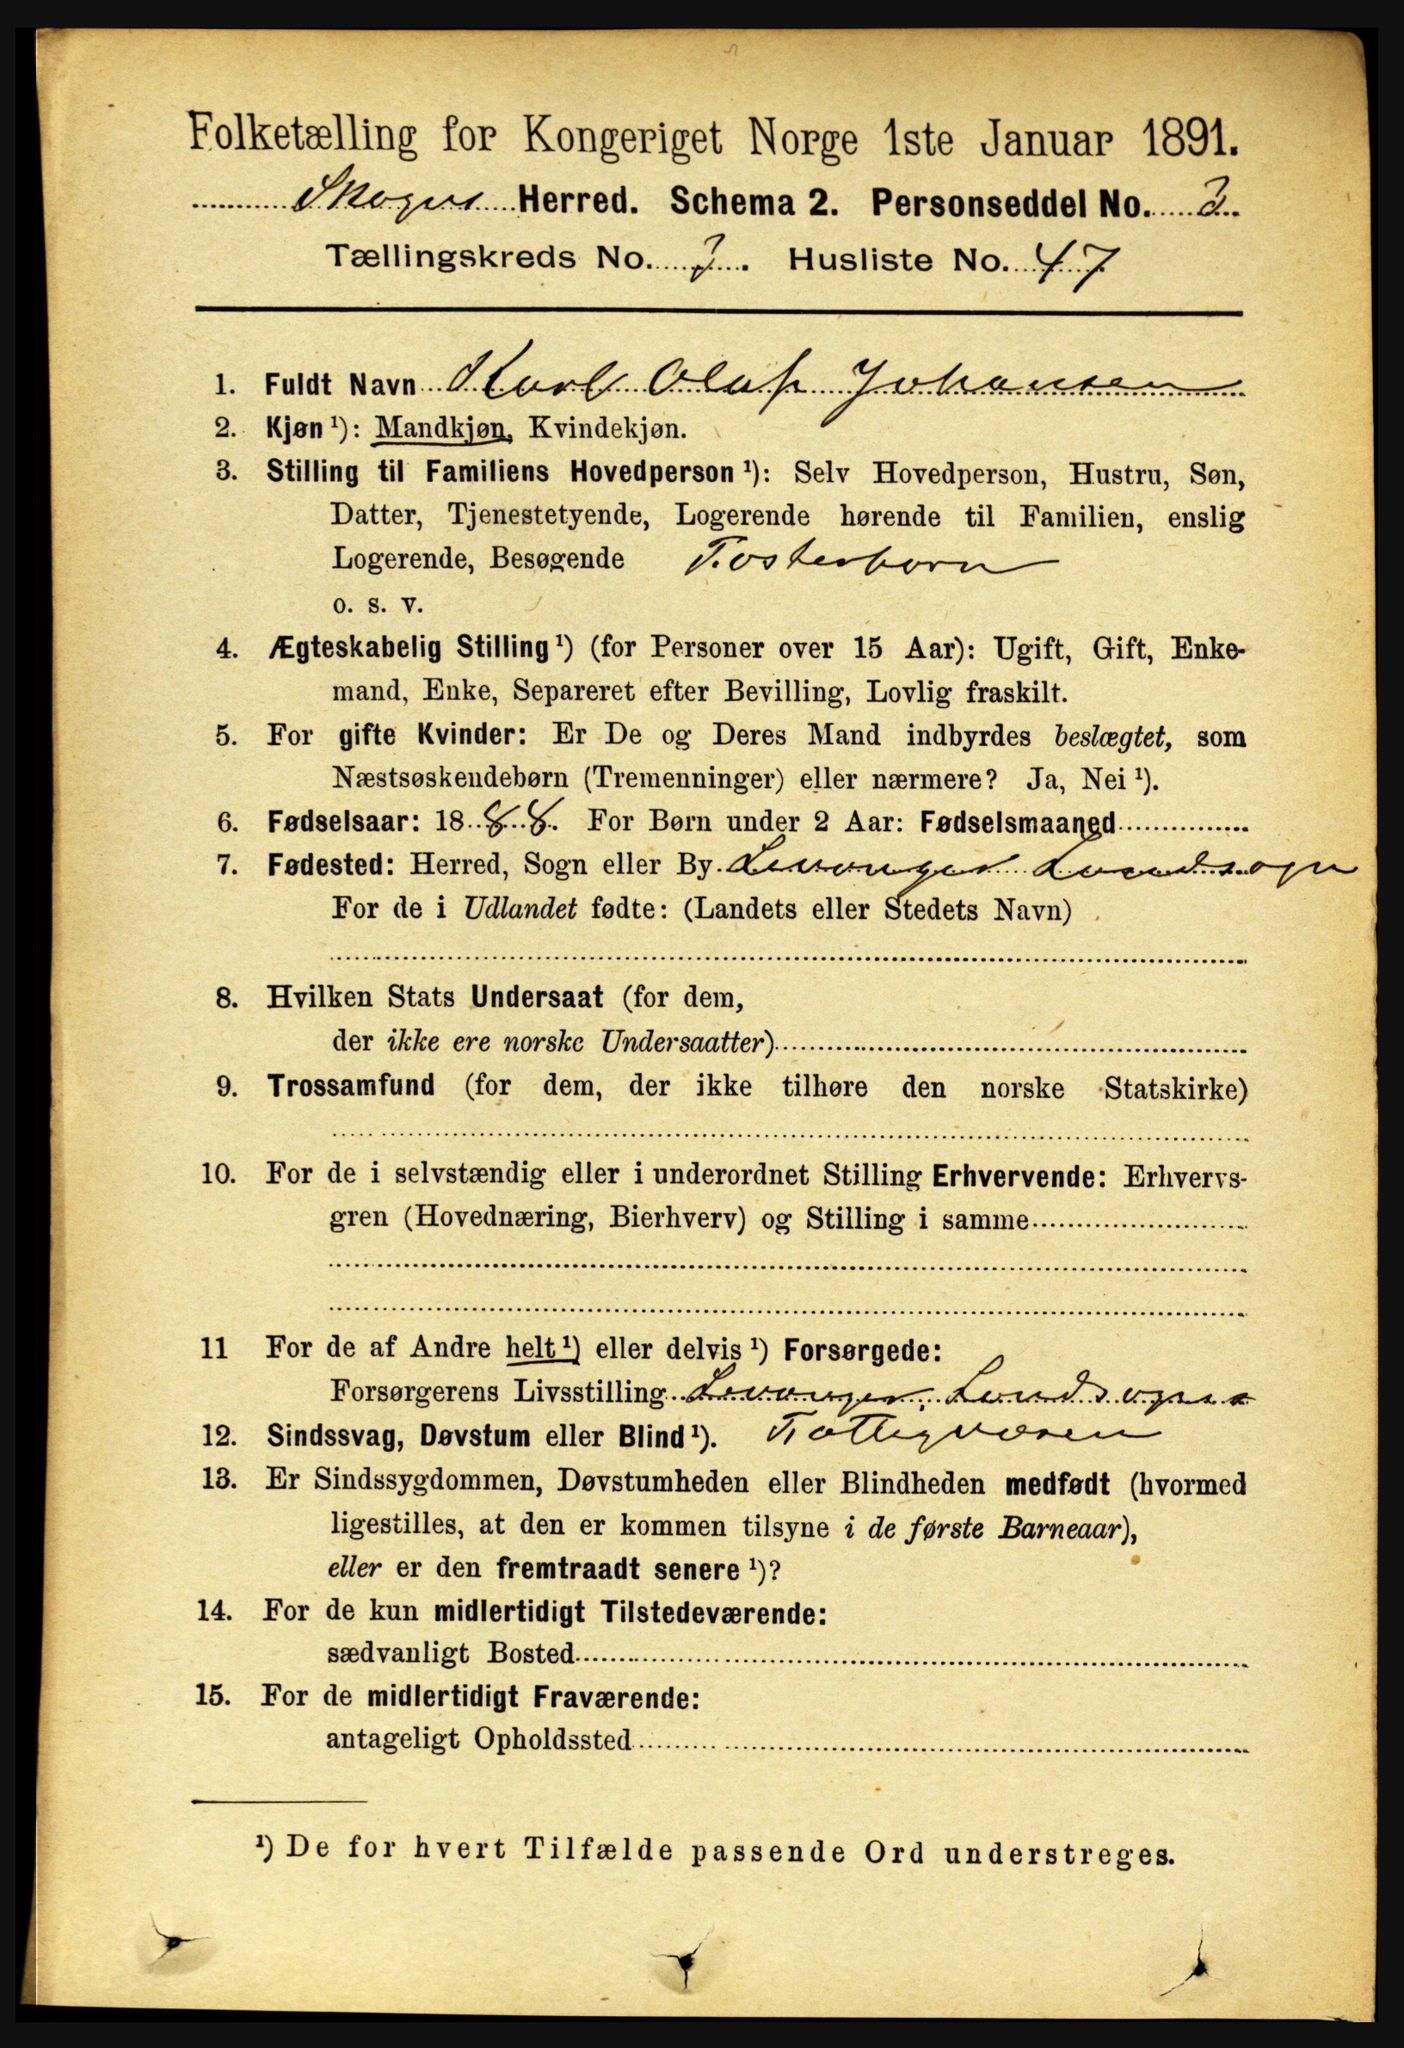 Folketælling for Kongeriget Norge 1ste Januar 1891.
Skogn Herred. Schema 2. Personseddel No. 3.
Tællingskreds No. 7. Husliste No. 47
1. Fuldt Navn Karl Olaf Johansen
2. Kjøn ¹): Mandkjøn, Kvindekjøn.
3. Stilling til Familiens Hovedperson ¹): Selv Hovedperson, Hustru, Søn,
Datter, Tjenestetyende, Logerende hørende til Familien, enslig
Logerende, Besøgende Fosterbarn
o. s. v.
4. Ægteskabelig Stilling ¹) (for Personer over 15 Aar): Ugift, Gift, Enke-
mand, Enke, Separeret efter Bevilling, Lovlig fraskilt.
5. For gifte Kvinder: Er De og Deres Mand indbyrdes beslægtet, som
Næstsøskendebørn (Tremenninger) eller nærmere? Ja, Nei ¹).
6. Fødselsaar: 1888. For Børn under 2 Aar: Fødselsmaaned
7. Fødested: Herred, Sogn eller By Levanger Landsogn
For de i Udlandet fødte: (Landets eller Stedets Navn)
8. Hvilken Stats Undersaat (for dem,
der ikke ere norske Undersaatter)
9. Trossamfund (for dem, der ikke tilhøre den norske Statskirke)
10. For de i selvstændig eller i underordnet Stilling Erhvervende: Erhvervs-
gren (Hovednæring, Bierhverv) og Stilling i samme
11 For de af Andre helt ¹) eller delvis ¹) Forsørgede:
Forsørgerens Livsstilling Levanger Landsogns
12. Sindssvag, Døvstum eller Blind ¹). Fattigvæsen
13. Er Sindssygdommen, Døvstumheden eller Blindheden medfødt (hvormed
ligestilles, at den er kommen tilsyne i de første Barneaar),
eller er den fremtraadt senere ¹)?
14. For de kun midlertidigt Tilstedeværende:
sædvanligt Bosted
15. For de midlertidigt Fraværende:
antageligt Opholdssted
¹) De for hvert Tilfælde passende Ord understreges.